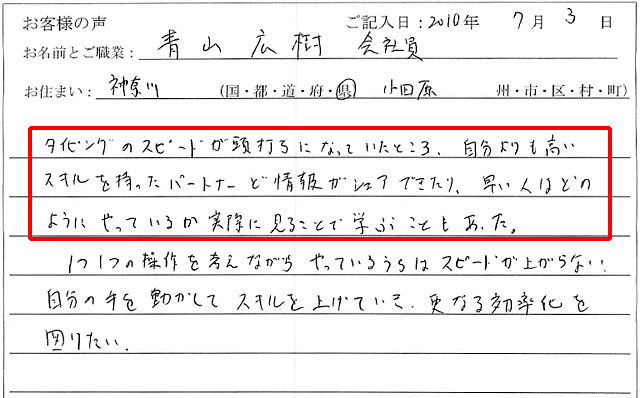 お客様の声 ご記入日：2010年 7月 3日
お名前とご職業： 青山 広樹 会社員
お住まい： 神奈川 (国・都・道・府・県) 小田原 州・市・区・村・町)
タイピングのスピードが頭打ちになっていたところ、自分よりも高い
スキルを持ったパートナーと情報がシェアできたり、早い人はどの
ようにやっているか実際に見ることで学ぶこともあった。
1つ1つの操作を考えながらやっているうちはスピードが上がらない。
自分の手を動かしてスキルを上げていき、更なる効率化を
図りたい.